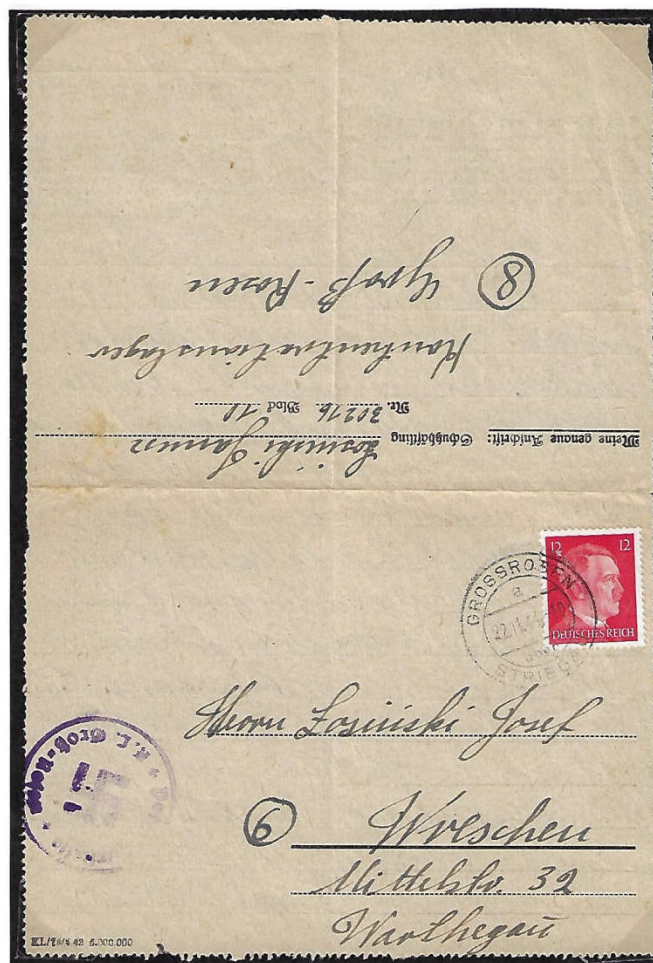 Meine genaue Anschrift: Schutzhäftling Łosiński Janusz
Nr. 20216 Block 10
Konzentrationslager
Groß-Rosen
8
12 12
DEUTSCHES REICH
GROSSROSEN
a
STRIEGAU
Herrn Łosiński Josef
6 Wreschen
Mittelstr. 32
Warthegau
K.L. Groß-Rosen
KL/75/4.43 5.000.000